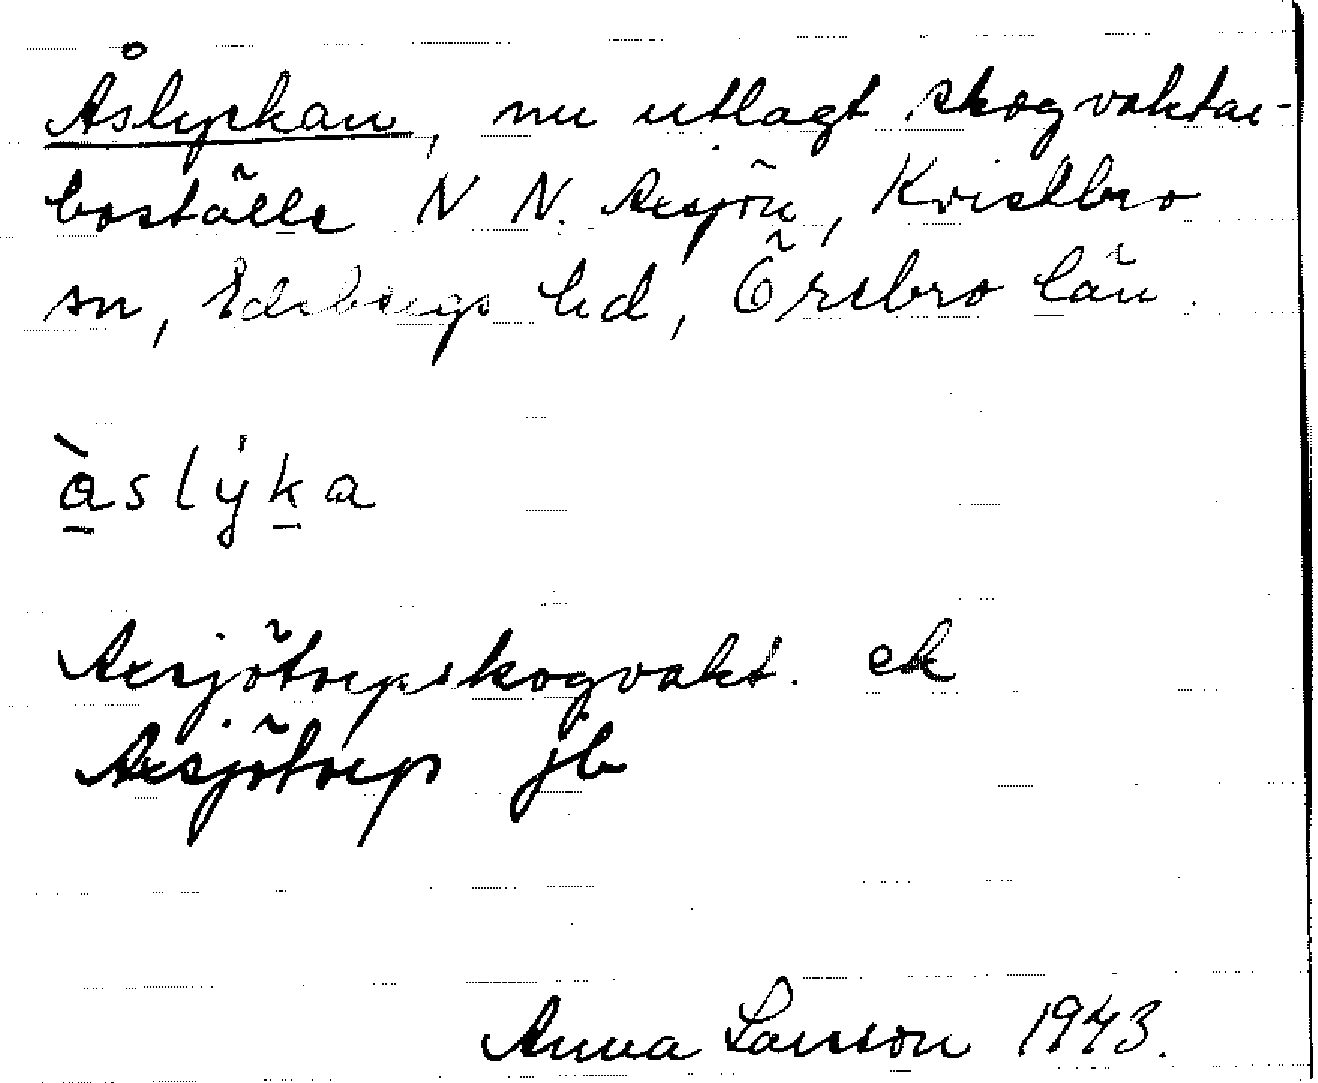 Åslyckan, nu utlagt skogvaktar-
boställe N N. Arsjön, Kvistbro
sn, Edsbergs hd, Örebro län.
à̱slýḵa
Arsjötorpskogvakt. ek
Arsjötorp jb
Anna Larson 1943.